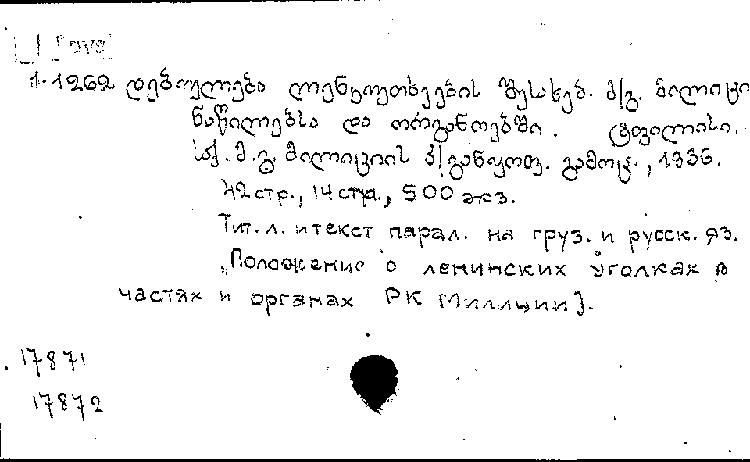 1.1262 დებულება ლენკუთხეების შესახებ. მ/გ. მილიცი
ნაწილებსა და ორგანოებში. ტფილისი.
საქ. მ. გ. მილიციის პ/განყოფ. გამოც., 1935.
42 стр., 14 стр., 500 экз.
Тит. л. и текст парал. на груз. и русск. яз.
„Положение о ленинских уголках в
частях и органах РК [Милиции].
17871
17872